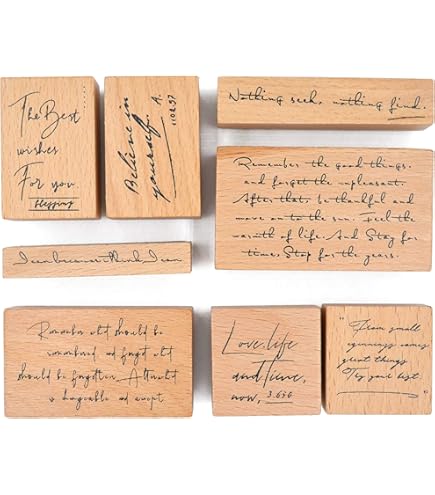 The Best
wishes
For you.
blessing
Believe in
yourself.
A.
110237
Nothing seek, nothing find.
Remember the good things.
and forget the unpleasant.
After that, be thankful and
move on to the sun. Feel the
warth of life. And Stay for
time. Stop for the years.
I can because i think I can
Remember wht should be
remembered and forget wht
should be forgotten. Alter wht
is changeable and accept.
Love, life
and time,
now, 3.656
"From small
eginnings comes
great things
Try your best.